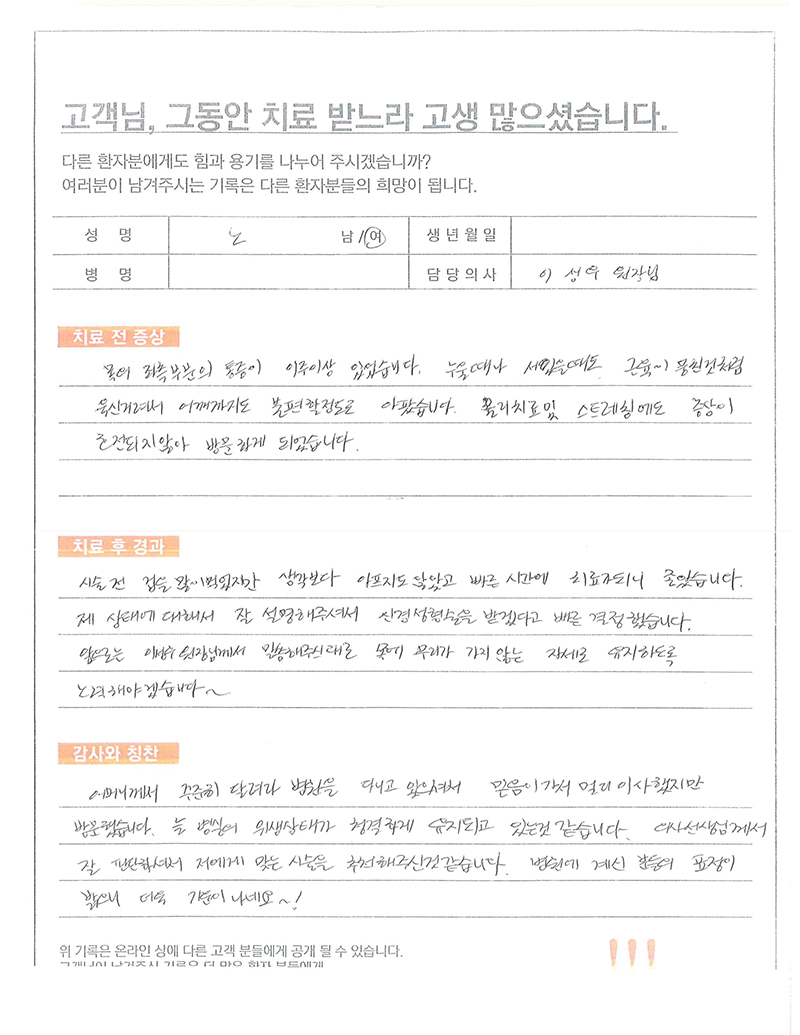 고객님, 그동안 치료 받느라 고생 많으셨습니다.
다른 환자분에게도 힘과 용기를 나누어 주시겠습니까?
여러분이 남겨주시는 기록은 다른 환자분들의 희망이 됩니다.
성 명 노 남/여 생년월일
병 명 담당의사 이성우 원장님
치료 전 증상
목의 좌측부분의 통증이 이주이상 있었습니다. 누울때나 서있을때도 근육이 뭉친것처럼
욱신거려서 어깨까지도 불편할정도로 아팠습니다. 물리치료및 스트레칭에도 증상이
호전되지않아 방문하게 되었습니다.
치료 후 경과
시술 전 겁을 많이먹었지만 생각보다 아프지도 않았고 빠른 시간에 치료가되니 좋았습니다.
제 상태에 대해서 잘 설명해주셔서 신경성형술을 받겠다고 빠른 결정했습니다.
앞으로는 원장님께서 말씀해주신대로 목에 무리가 가지않는 자세로 유지하도록
노력해야겠습니다~
감사와 칭찬
어머니께서 꾸준히 병원을 다니고 있으셔서 믿음이가서 멀리이사했지만
방문했습니다. 늘 병실의 위생상태가 청결하게 유지되고 있는것 같습니다. 의사선생님께서
잘 판단하셔서 저에게 맞는 시술을 추천해주신것같습니다. 병원에 계신 분들의 표정이
밝으니 더욱 기분이나네요~!
위 기록은 온라인 상에 다른 고객 분들에게 공개 될 수 있습니다.